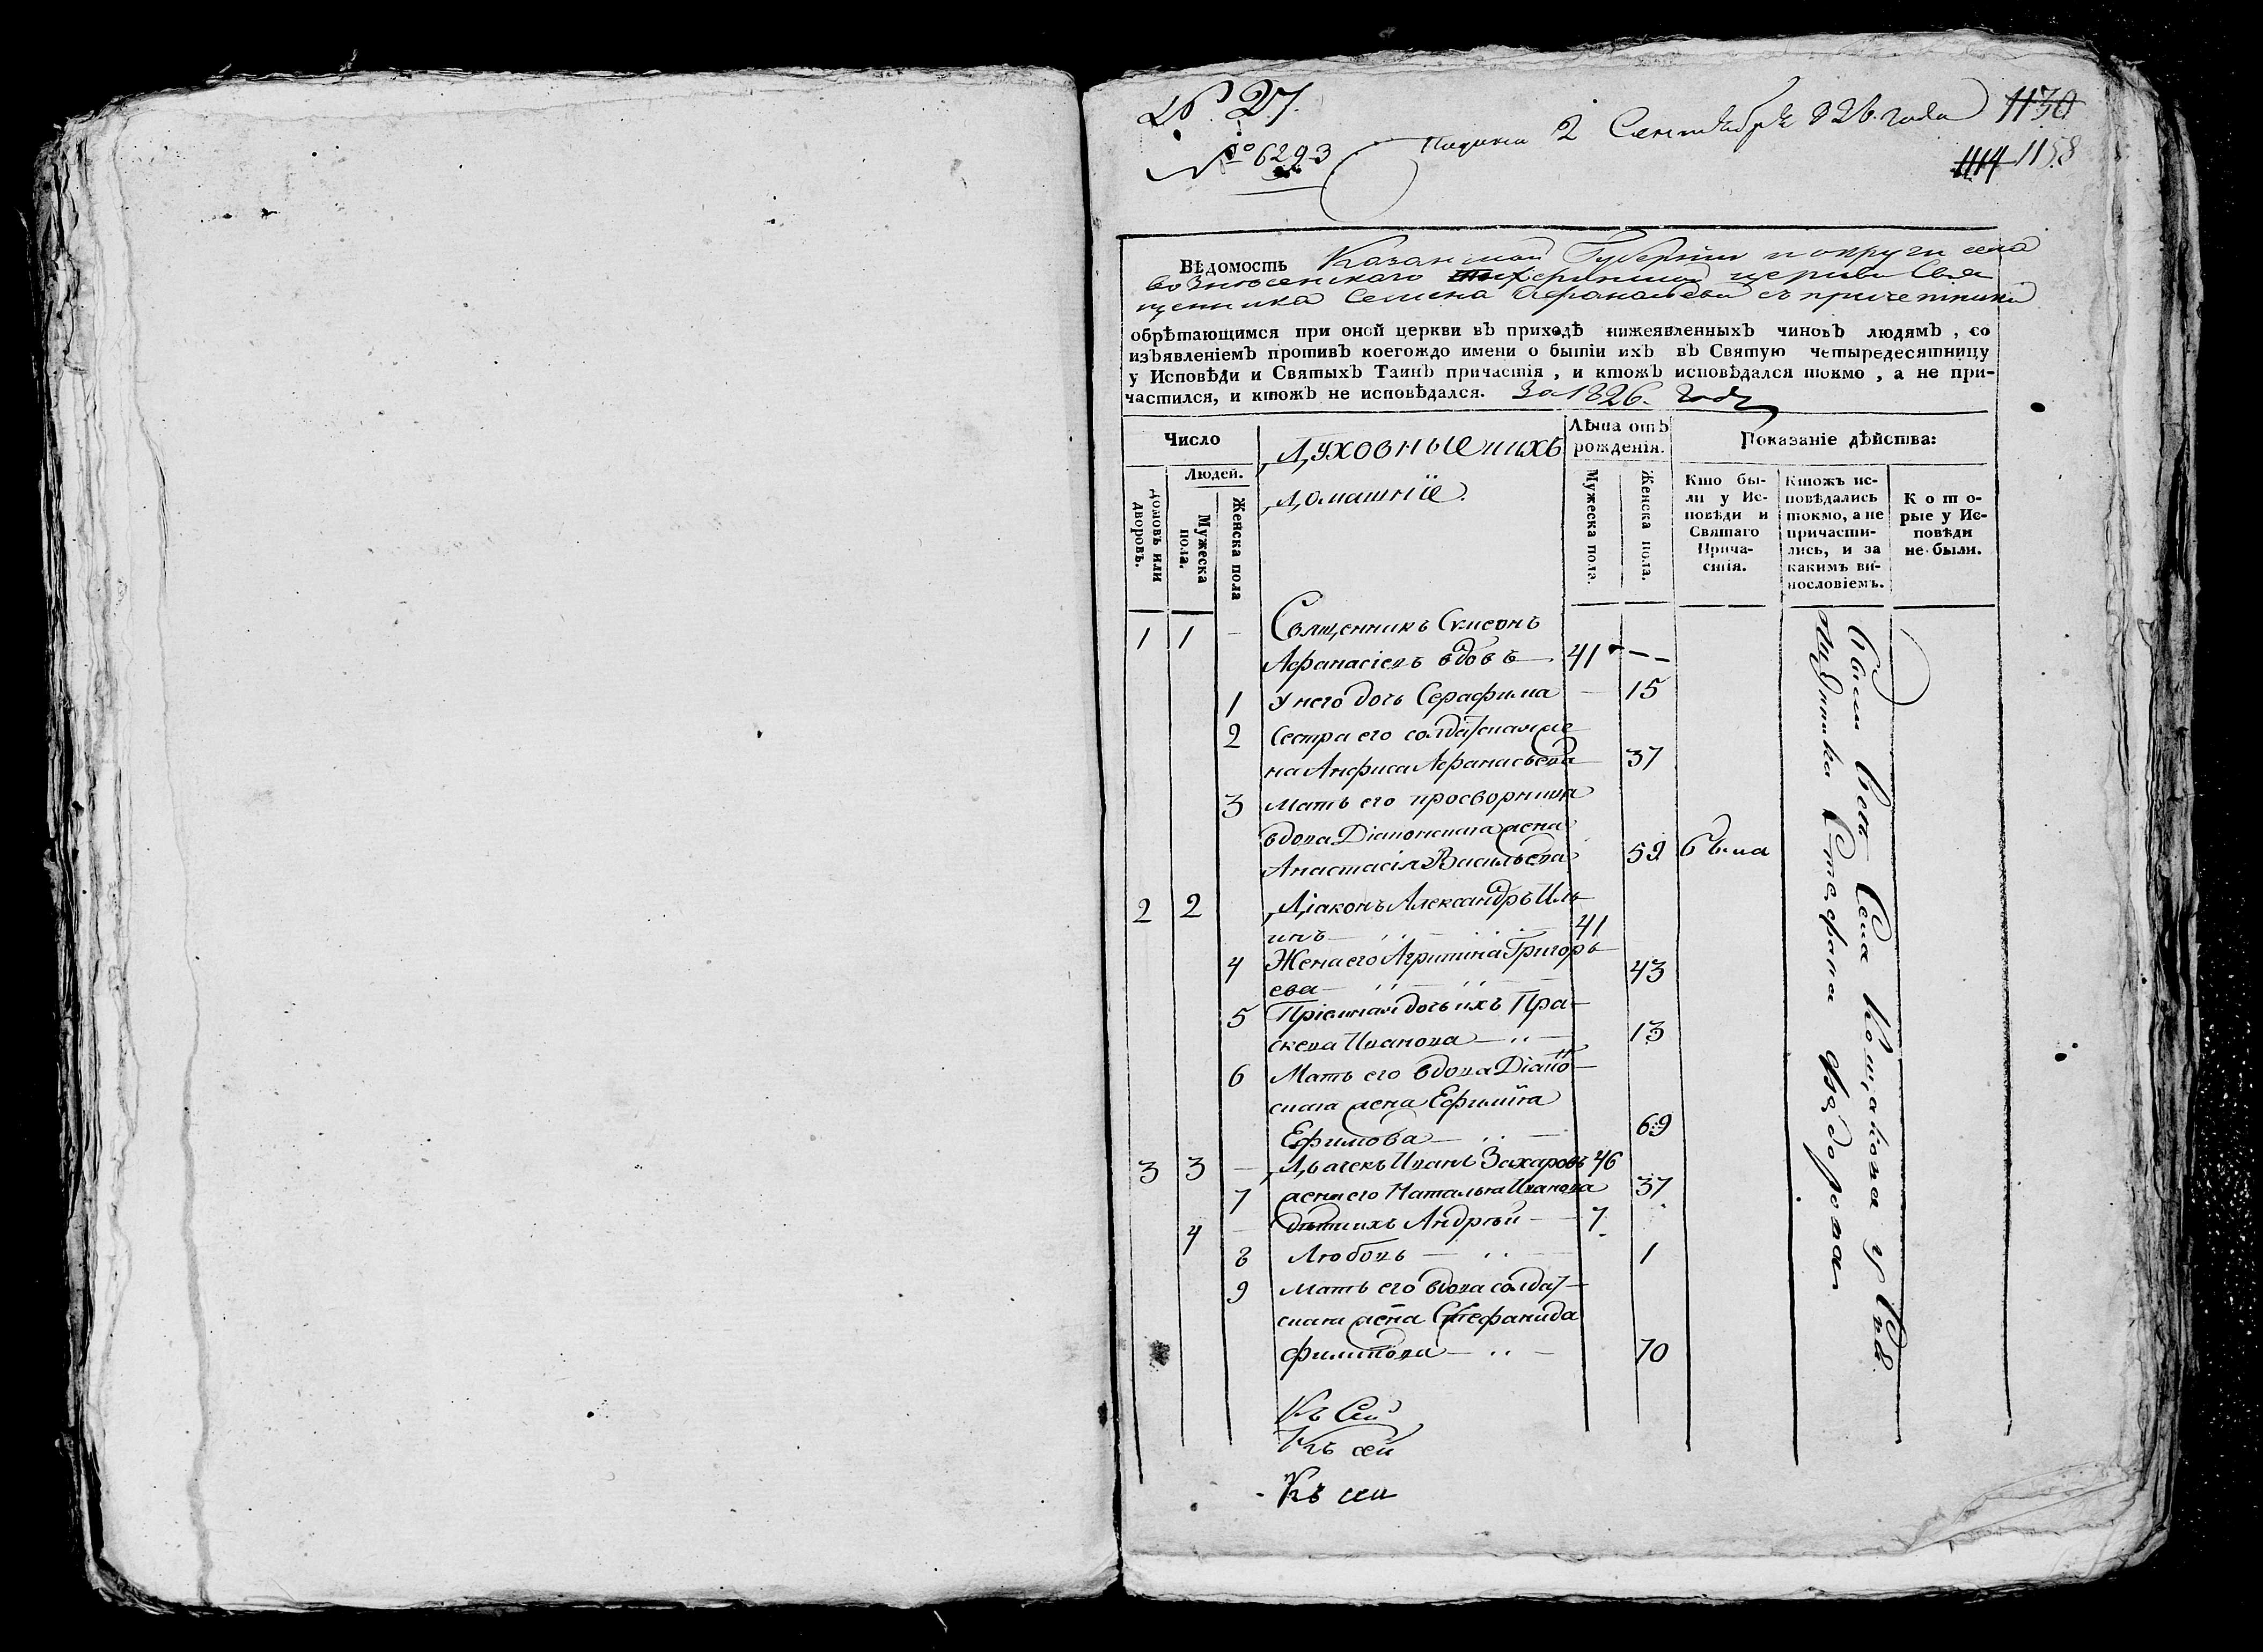 № 27.
№ 6293
Подана 2 Сентября 826 года
1130
1114 1158
Вѣдомость Казанской Губернiи и округи села
вознесенскаго церкви Свя
щенника Семена Афанасьева съ причетники
обрѣтающимся при оной церкви въ приходѣ нижеявленныхъ чиновъ людямъ , со
изъявленіемъ противъ коегождо имени о бытіи ихъ въ Святую четыредесятницу
у Исповѣди и Святыхъ Таинъ причастія , и ктожъ исповѣдался токмо , а не при-
частился, и ктожъ не исповѣдался. За 1826. годъ
Число
Людей.
домовъ или дворовъ.
Мужеска пола.
Женска пола
Духовные ихъ
домашнiе.
Лѣта отъ рожденія.
Мужеска пола.
Женска пола.
Показаніе дѣйства:
Кто бы-
ли у Ис-
повѣди и
Святаго
Прича-
стія.
Ктожъ ис-
повѣдались
токмо, а не
причасти-
лись, и за
какимъ ви-
нословіемъ.
Кото-
рые у Ис-
повѣди
не были.
1 1 — Священникъ Симеонъ
Афанасiевъ вдовъ — 41 — —
1 У него дочь Серафима — 15
2 Сестра его солдатская же
на Анфиса Афанасьева 37
3 Мать его просворница
вдова Дiаконская жена
Анастасiя Васильева 59 была
2 2 Дiаконъ Александръ Иль
инъ — 41
4 Жена его Агрипина Григорь
ева — 43
5 Прiемная дочь ихъ Пра-
скева Иванова — 13
6 Мать его вдова Дiако-
ская жена Ефимiа
Ефимова — 69
3 3 — Дьячекъ Иванъ Захаровъ 46
7 жена его Наталья Иванова 37
4 — дѣти ихъ Андрѣй — 7.
8 Любовь — 1
9 Мать его вдова солдат-
ская жена Стефанида
Филипова — 70
Къ Сей
Къ сей
Къ сей
были Села у
Стефана Ѳедорова